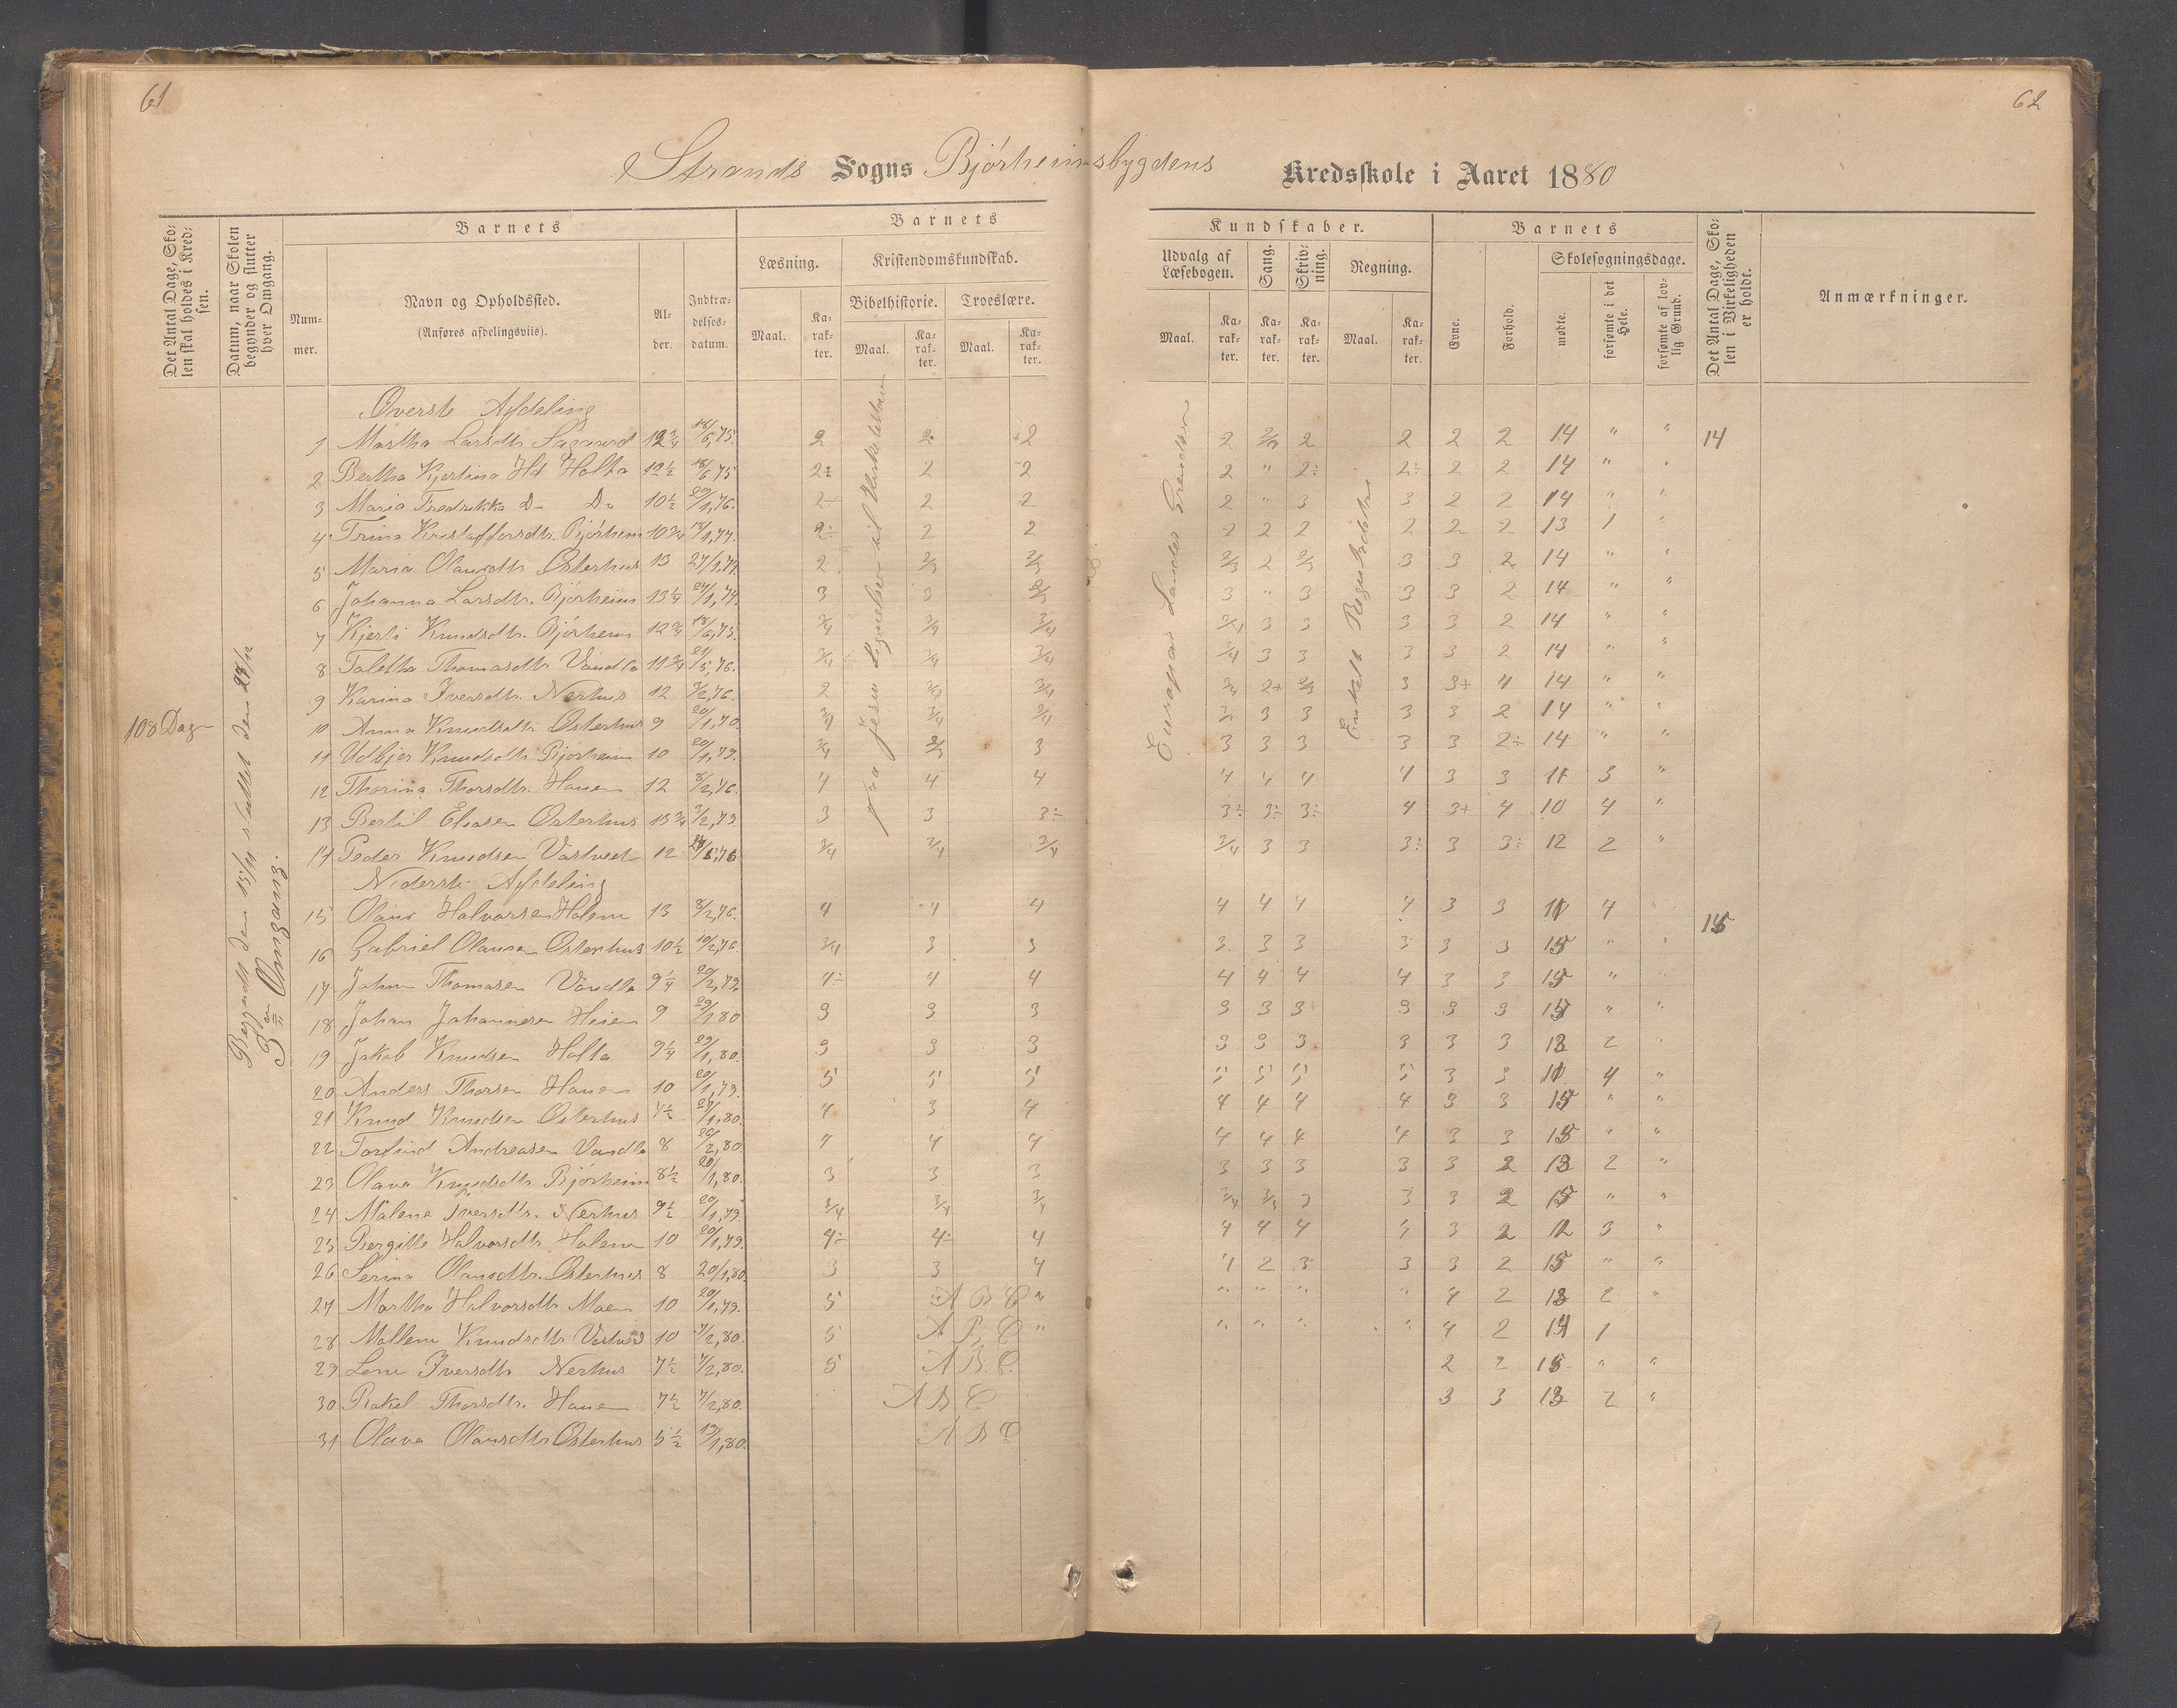 61
62
Strands Sogns Bjórheimsbygdens Kredsskole i Aaret 1880
Det Antal Dage, Skolen skal holdes i Kredsen.
Datum, naar Skolen begynder og slutter hver Omgang.
Barnets
Nummer.
Navn og Opholdssted.
(Anføres afdelingsviis).
Alder.
Indtrædelsesdatum.
Barnets
Læsning.
Kristendomskundskab.
Bibelhistorie.
Troeslære.
Maal.
Karakter.
Maal.
Karakter.
Maal.
Karakter.
Kundskaber.
Udvalg af Læsebogen.
Sang.
Skrivning.
Regning.
Maal.
Karakter.
Karakter.
Karakter.
Maal.
Karakter.
Barnets
Evne.
Forhold.
Skolesøgningsdage.
mødte.
forsømte i det Hele.
forsømte af lovlig Grund.
Det Antal Dage, Skolen i Virkeligheden er holdt.
Anmærkninger.
108 Dage
Begyndt den 15/11 sluttet den
3die Omgang.
Fra Jesu Lignelser til
Europas Landes
Enkelt
Øverste Afdeling
1 Martha Larsdtr. 12 3/4 18/6,75. 2 2 2 2 2/3 2 2 2 2 14 " " 14
2 Bertha Kjertina Hd Holta 12 1/2 18/6 75 2÷ 2 2 2 " 2÷ 2÷ 2 2 14 " "
3 Maria Fredrikka Do Do 10 1/2 20/1,76. 2÷ 2 2 2 " 3 3 2 2 14 " "
4 Trina Kristoffersdtr. Bjórheim 10 3/4 18/1,77. 2÷ 2 2 2 2 2 2 2 2 13 1 "
5 Maria Olausdtr Østerhus 13 27/1,74. 2 2/3 2/3 2/3 2 2/3 3 3 2 14 " "
6 Johanna Larsdtr. Bjórheim 13 1/4 27/1,74. 3 3 2/3 3 " 3 3 3 2 14 " "
7 Kjerti Knudsdtr. Bjórheim 12 3/4 18/6,75. 3/4 3/4 3/4 3/4 3 3 3 3 2 14 " "
8 Taletha Thomasdtr Vandla 11 3/4 24/5,76. 3/4 3/4 3/4 3/4 3 3 3 3 2 14 " "
9 Karina Iversdtr. Nerhus 12 3/2,76. 2 2/3 3/4 3/4 2+ 2/3 3 3+ 4 14 " "
10 Anna Knudsdtr Østerhus 9 20/1,70. 3/4 3/4 3/4 3 3 3 3 3 2 14 " "
11 Udbjer Knudsdtr Bjórheim 10 20/1,79. 3/4 2/3 3 3 3 3 3 3 2÷ 14 " "
12 Thorina Thorsdtr. Hauen 12 8/2,76. 4 4 4 4 4 4 4 3 3 11 3 "
13 Bertil Eliasen Østerhus 13 3/4 3/2,79 3 3 3÷ 3÷ 3÷ 3÷ 4 3+ 4 10 4 "
14 Peder Knudsen Vastveit 12 3/4 3/4 3/4 3/4 3 3 3÷ 3 3÷ 12 2 "
Nederste Afdeling
15 Olaus Halvorsen Holene 13 8/2,76. 4 4 4 4 4 4 4 3 3 11 4 15
16 Gabriel Olausen Østerhus 10 1/2 10/2,76. 3/4 3 3 3 3 3 3 3 3 15 " "
17 Johan Thomasen Vandla 9 1/4 20/2,79. 4÷ 4 4 4 4 4 4 3 3 15 " "
18 Johan Johannesen Heien 9 29/1 80 3 3 3 3 3 3 3 3 3 15 " "
19 Jakob Knudsen Holta 9 1/4 29/1,80. 3 3 3 3 3 3 3 3 3 13 2 "
20 Anders Thorsen Hauen 10 20/1,79. 5 5 5 5 5 5 5 3 3 11 4 "
21 Knud Knudsen Østerhus 7 1/2 20/1,80. 4 3 4 4 4 4 4 3 3 15 " "
22 Torfind Andreasen Vandla 8 20/2,80. 4 4 4 4 4 4 4 3 3 15 " "
23 Olava Knudsdtr Bjórheim 8 1/2 20/1,80. 3 3 3 3 3 3 3 3 2 13 2 "
24 Malena Iversdtr. Nerhus 9 1/2 20/1,79. 3/4 3/4 3/4 3/4 3/4 3 3 3 2 15 " "
25 Bergitte Halvorsdtr Holene 10 20/1,79. 4÷ 4÷ 4 4 4 4 4 3 2 12 3 "
26 Serina Olausdtr. Østerhus 8 20/1,80. 3 3 4 4 2 3 3 3 2 15 " "
27 Martha Halvorsdtr Moen 10 20/1,79. 5 A B C " " " " " 4 2 13 2 "
28 Mallene Knudsdtr. Vastveit 10 7/2,80. 5 A B C " " " " " 4 2 14 1
29 Lene Iversdtr Nerhus 7 1/2 7/2,80. 5 A B. C. 2 2 15 " "
30 Rakel Thorsdtr. Hauen 7 1/2 7/2,80. A B C 3 3 13 2 "
31 Olava Olausdtr Østerhus 5 1/2 19/1,80. A B C